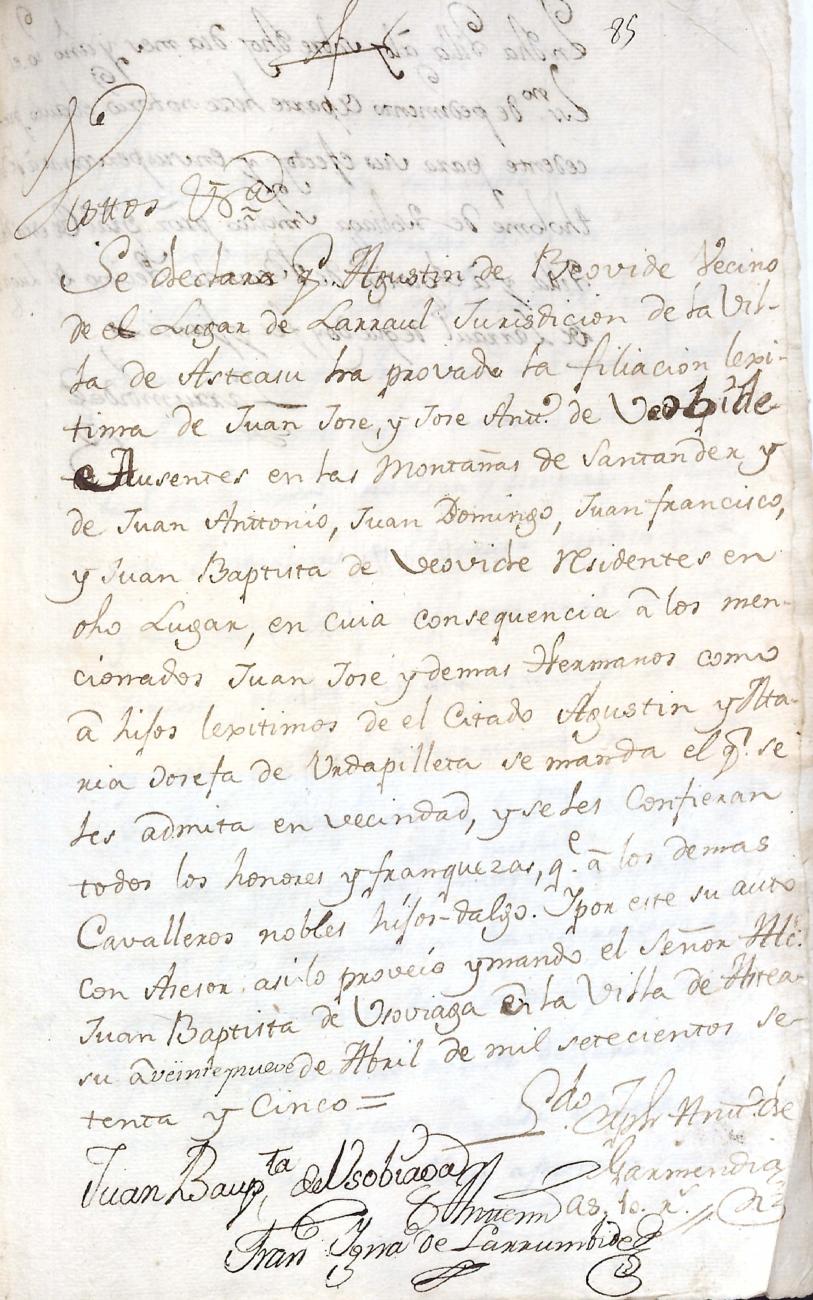 85
Auttos V.ª
Se declara q.e Agustin de Beovide Vecino
de el Lugar de Larraul Jurisdicion de la Vil-
la de Asteasu ha provado la filiacion lexi-
tima de Juan Jose, y Jose Antt.º de Veobide
Ausentes en las Montañas de Santander y
de Juan Anttonio, Juan Domingo, Juan francisco,
y Juan Baptista de Veovide residentes en
dho Lugar, en cuia consequencia â los men-
cionados Juan Jose y demas Hermanos como
â hijos lexitimos de el Citado Agustin y Ma-
ria Josefa de Urdapilleta se manda el q.e se
les admita en vecindad, y se les Confieran
todos los honores y franquezas, q.e â los demas
Cavalleros nobles hijos-dalgo. Y por este su auto
con Asesor asi lo proveió y mando el Señor Alc.e
Juan Baptista de Usoviaga en la Villa de Astea-
su â veinte y nueve de Abril de mil setecientos se-
tenta y Cinco =
L.do Jph Antt.º de
Garmendia
Juan Baup.ta de Usobiaga
Antemi
Fran.co Ygna.º de Larrumbide